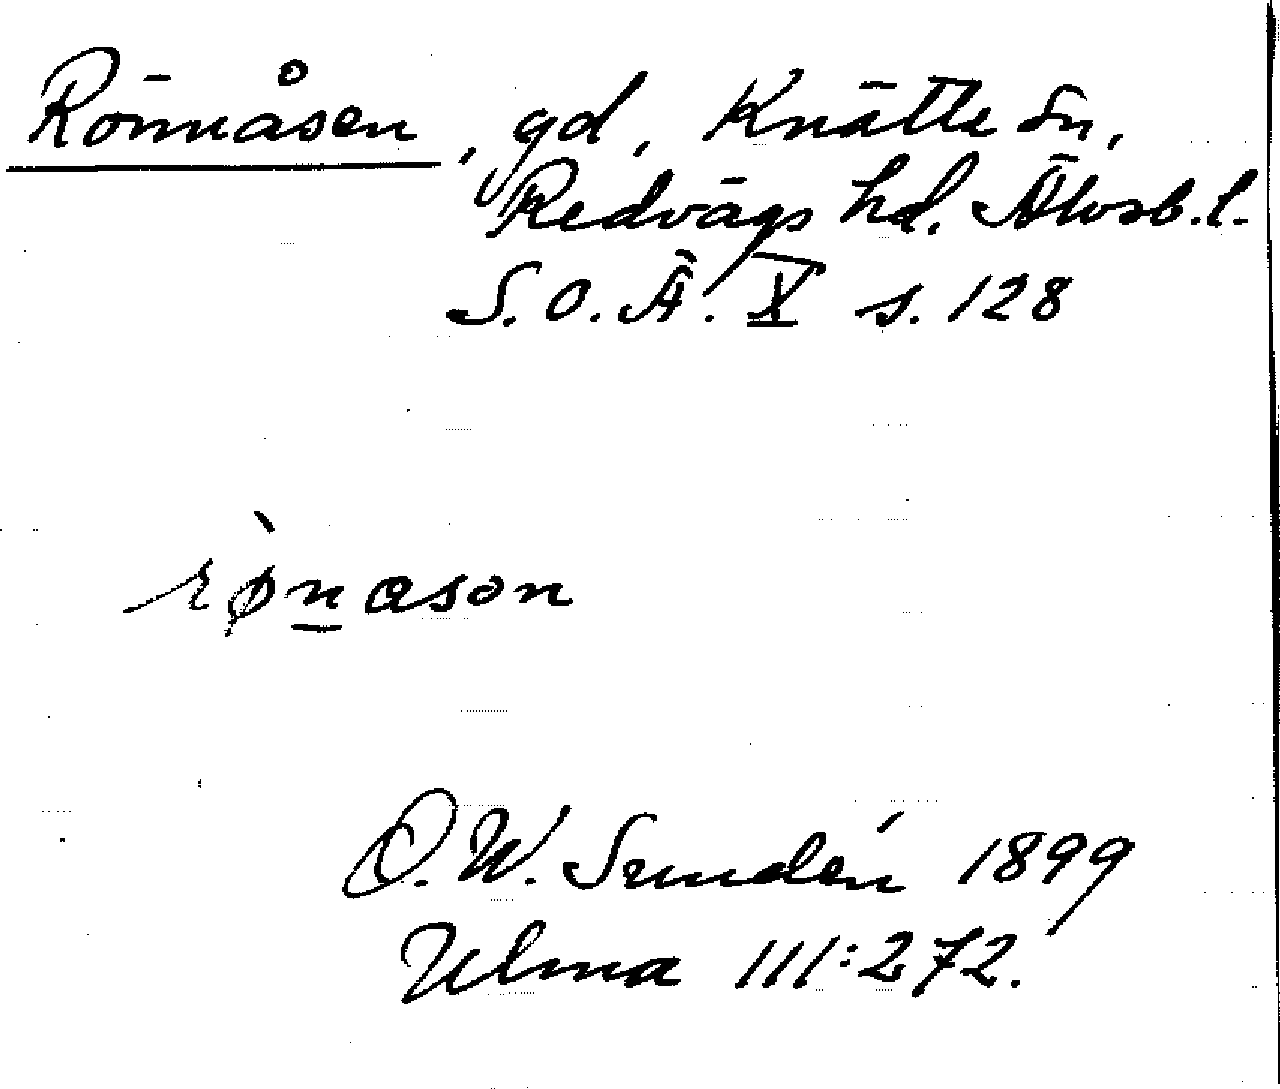 Rönnåsen, gd, Knätte sn,
Redvägs hd. Älvsb. l.
S.O.Ä. X s. 128
rø̀n̲ason
O.W. Sundén 1899
Ulma 111:272.